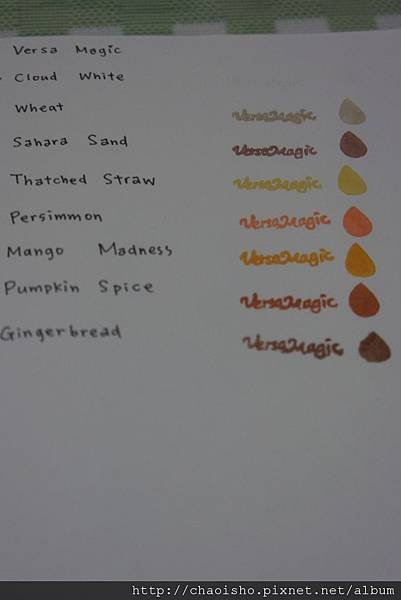 Versa Magic
Cloud White
Wheat VersaMagic
Sahara Sand VersaMagic
Thatched Straw VersaMagic
Persimmon VersaMagic
Mango Madness VersaMagic
Pumpkin Spice VersaMagic
Gingerbread VersaMagic
http://chaoisho.pixnet.net/album